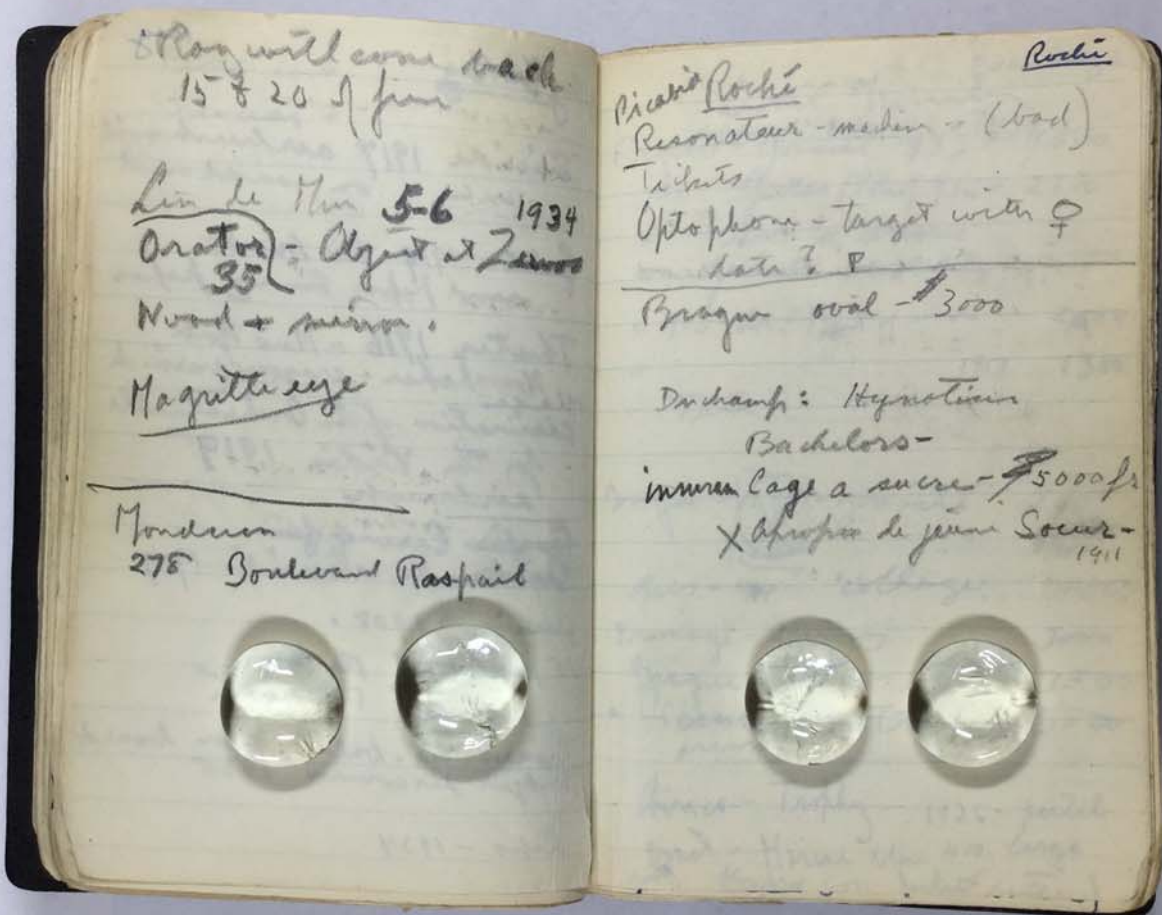 Ray will come back
15 to 20 of
Lin de 5-6 1934
Orator - Object at Zervos
35
mirror.
Magritte eye
278 Boulevard Raspail
Roché
Picabia Roché
Resonateur - machine - (bad)
Tickets
Optophone - target with ♀
date ?
Braque oval - $3000
Duchamp:
Bachelors -
Cage a sucre - 5000 fr
X Apropos de jeune Soeur -
1911